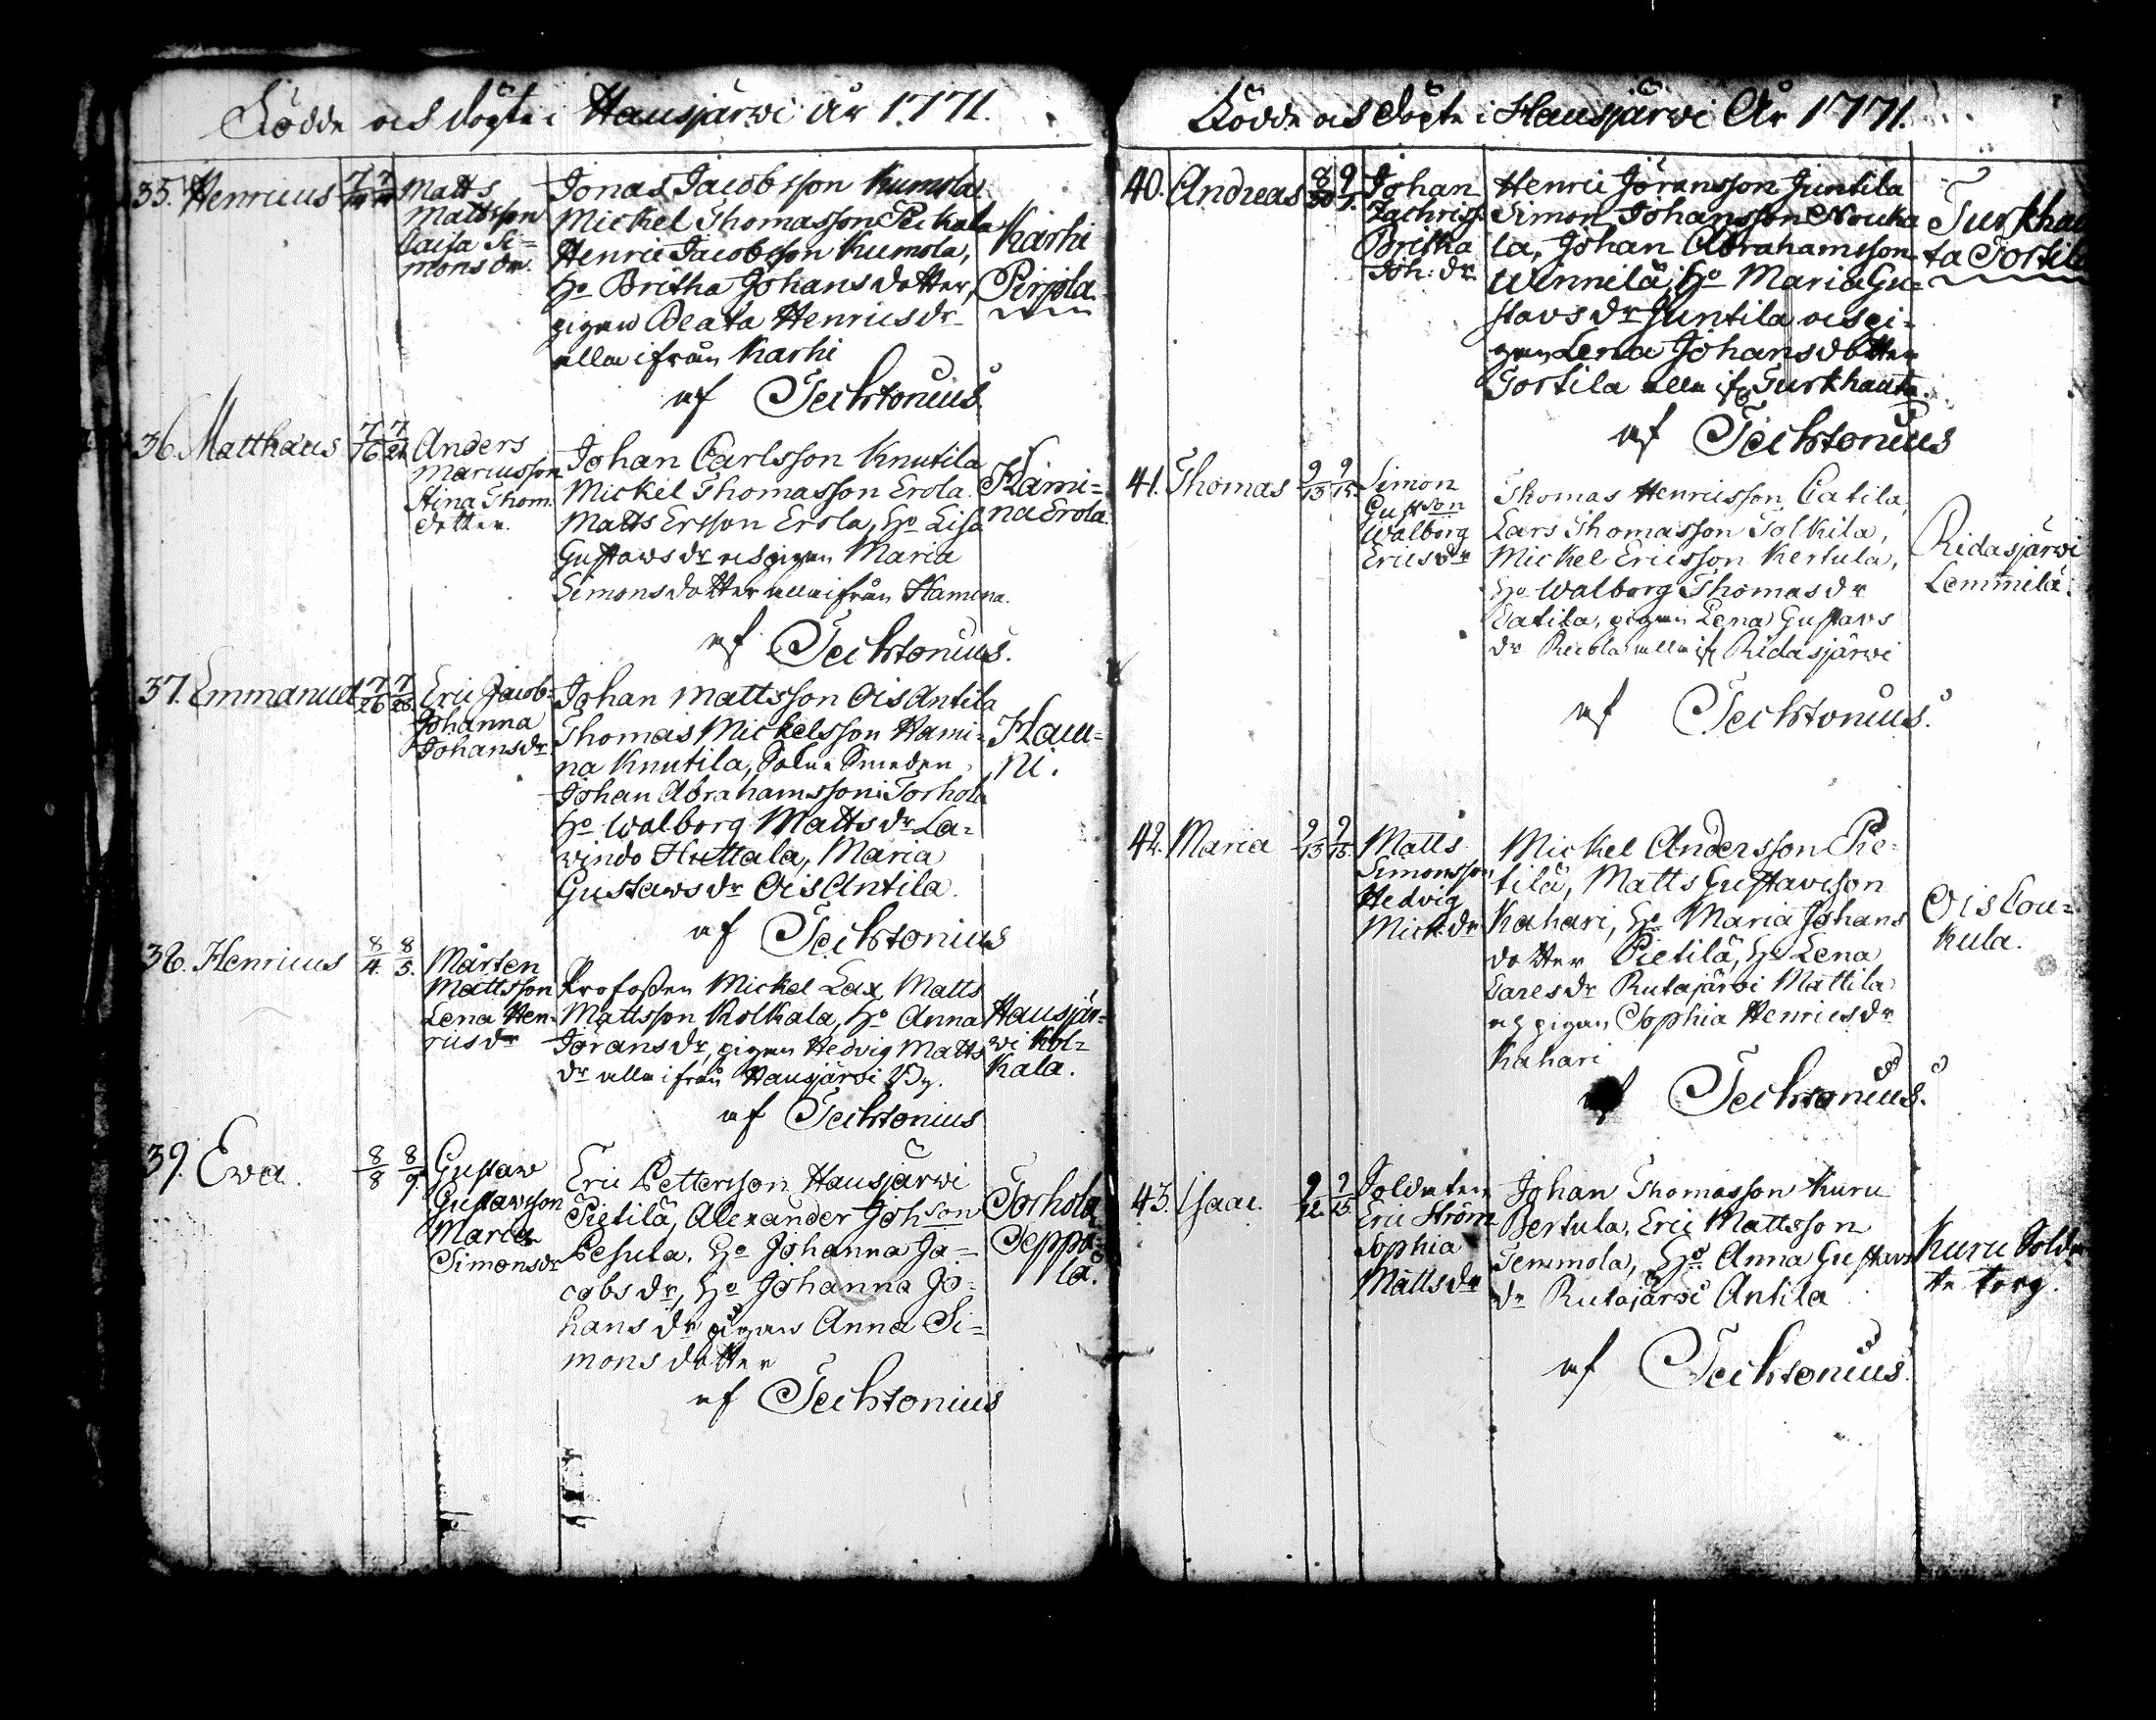 Födde och döpte i Hausjärwi år 1771.
35. Henricus 7/ 7/ Matts Mattsson Caisa Simons dr.
Jonas Jacobsson Kumola
Mickel Thomasson Peikala
Henric Jacobsson Kumola,
Ho Britha Johans dotter,
pigan Beata Henrics dr
alla ifrån Karhi
af Techtonius
Karhi
Pirjola
36. Matthæus 7/16 7/21 Anders
Mariusson
Stina Thom.
dotter.
Johan Carlsson Knutila
Mickel Thomasson Erola
Matts Ersson Erola, Ho Lisa
Gustaws dr och pigan Maria
Simons dotter alla ifrån Hamina.
af Techtonius.
Hami=
na Erola.
37. Emmanuel 7/26 7/28 Eric Jacob-
Johanna
Johans dr
Johan Mattsson Ois Antila
Thomas Mickelsson Hami=
na Knutila, Smeden
Johan Abrahamsson i Torhola
Ho Walborg Matts dr La=
windo Huttala, Maria
Gustaws dr Ois Antila.
af Techtonius
Hau=
ni.
38. Henricus 8/4. 8/5. Mårten
Mattsson
Lena Hen-
rics dr
Profossen Mickel Lax, Matts
Mattsson Kolkala, Ho Anna
Jörans dr, pigan Hedvig Matts
dr alla ifrån Hausjärwi By.
af Techtonius
Hausjär=
wi Kol=
kala.
39. Ewa. 8/8 8/9. Gustaw
Gustawsson
Maria
Simons dr
Eric Pettersson Hausjärwi
Pietilä, Alexander Johson
Pesula, Ho Johanna Ja=
cobs dr, Ho Johanna Jo=
hans dr pigan Anna Si=
mons dotter
af Techtonius
Torhola
Seppä=
lä.
Födde och döpte i Hausjärwi År 1771.
40. Andreas 8/30 9/1. Johan
Zachriss.
Britha
Joh: dr
Henric Jöransson Juntila
Simon Johansson Nouka
la, Johan Abrahamsson
Winnilä, Ho Maria Gu=
stavs dr Juntila och pi=
gan Lena Johans dotter
Tortila alla ifr Turkhauta.
af Techtonius
Turkhau
ta Tortila
41. Thomas 9/13 9/15. Simon
Gustson
Walborg
Erics dr
Thomas Henricsson Catila,
Lars Thomasson Tolkila,
Mickel Ericsson Kertula,
Ho Walborg Thomas dr
Catila, pigan Lena Gustavs
dr alla ifr Ridasjärwi
af Techtonius.
Ridasjärwi
Lemmilä.
42. Maria 9/13 9/15. Matts
Simonsson
Hedvig
Mick. dr
Mickel Andersson Pie-
tilä, Matts Gustavsson
Kahari, Ho Maria Johans
dotter Pietilä, Ho Lena
Lares dr Rutajärwi Mattila
och pigan Sophia Henrics dr
Kahari
af Techtonius.
Ois Lou=
kula.
43. Isaac. 9/12. 9/15 Soldaten
Eric Ström
Sophia
Matts dr
Johan Thomasson Kuru
Bertula, Eric Mattsson
Temmola, Ho Anna Gustavs
dr Rutajärwi Antila
af Techtonius.
Kuru Solda
te torg.